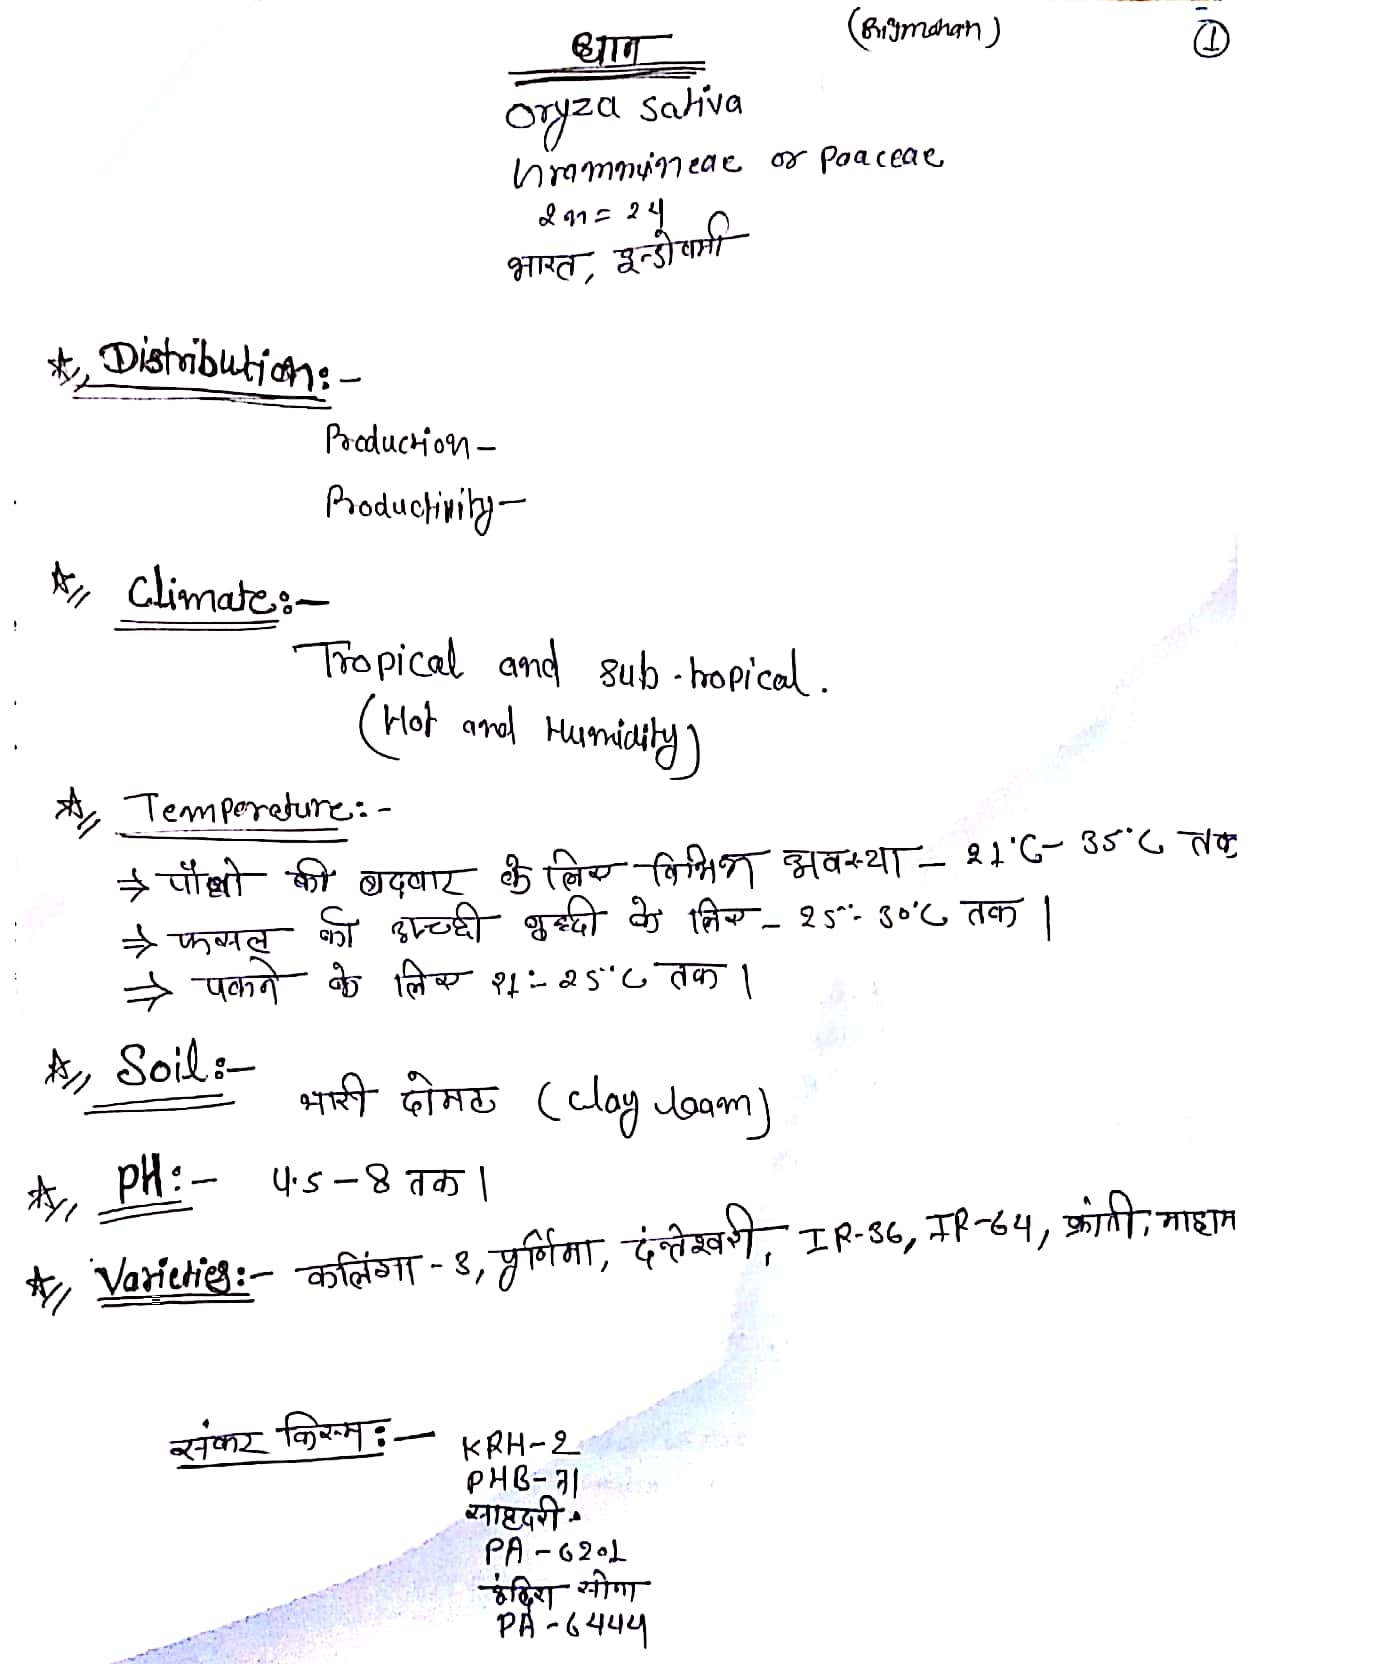 (Brijmohan) ①
धान
Oryza sativa
Grammyineae or Poaceae
2n = 24
भारत, इन्डोवर्मा
☆,, Distribution:-
Production -
Productivity -
☆,, Climate:-
Tropical and sub-tropical.
(Hot and Humidity)
☆,, Temperature:-
⇒ पौधो की बढवार के लिए विभिन्न अवस्था - 21°C - 35°C तक
⇒ फसल की अच्छी वृध्दी के लिए - 25°- 30°C तक |
⇒ पकने के लिए 21°- 25°C तक |
☆,, Soil:-
भारी दोमट (clay loam)
☆,, PH:- 4.5 - 8 तक |
☆,, Varieties:- कलिंगा - 3, पूर्णिमा, दंतेश्वरी, IR-36, IR-64, क्रांती, माहामा
संकर किस्म:- KRH-2
PHB-71
साहदरी.
PA-6201
इंदिरा सोना
PA-6444